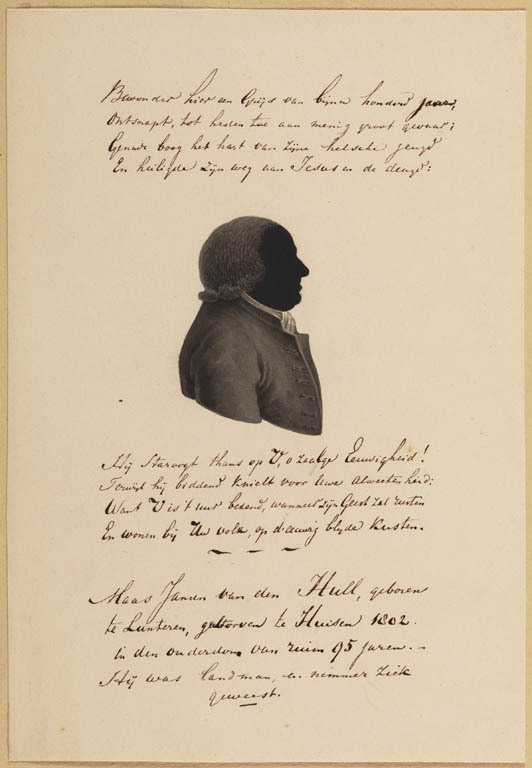 Bewonder hier een Grijs van bijna honderd jaar,
Ontsnapt, tot heden toe aan menig groot gevaar;
Genade boog het hart van zijne helsche jeugd
En heiligde zijn weg aan Jesus en de deugd:
Hij staroogt thans op U, o zaalge Eeuwigheid!
Terwijl hij biddend knielt voor Uwe Alweetenheid;
Want U is't uur bekend, wanneer zijn Geest zal rusten
En wonen bij Uw volk, op d'eeuwig blyde Kusten.
Maas Jansen van den Hull, geboren
te Lunteren, gestorven te Huisen 1802.
in den ouderdom van ruim 95 jaren. -
Hij was landman, en nimmer ziek
geweest.